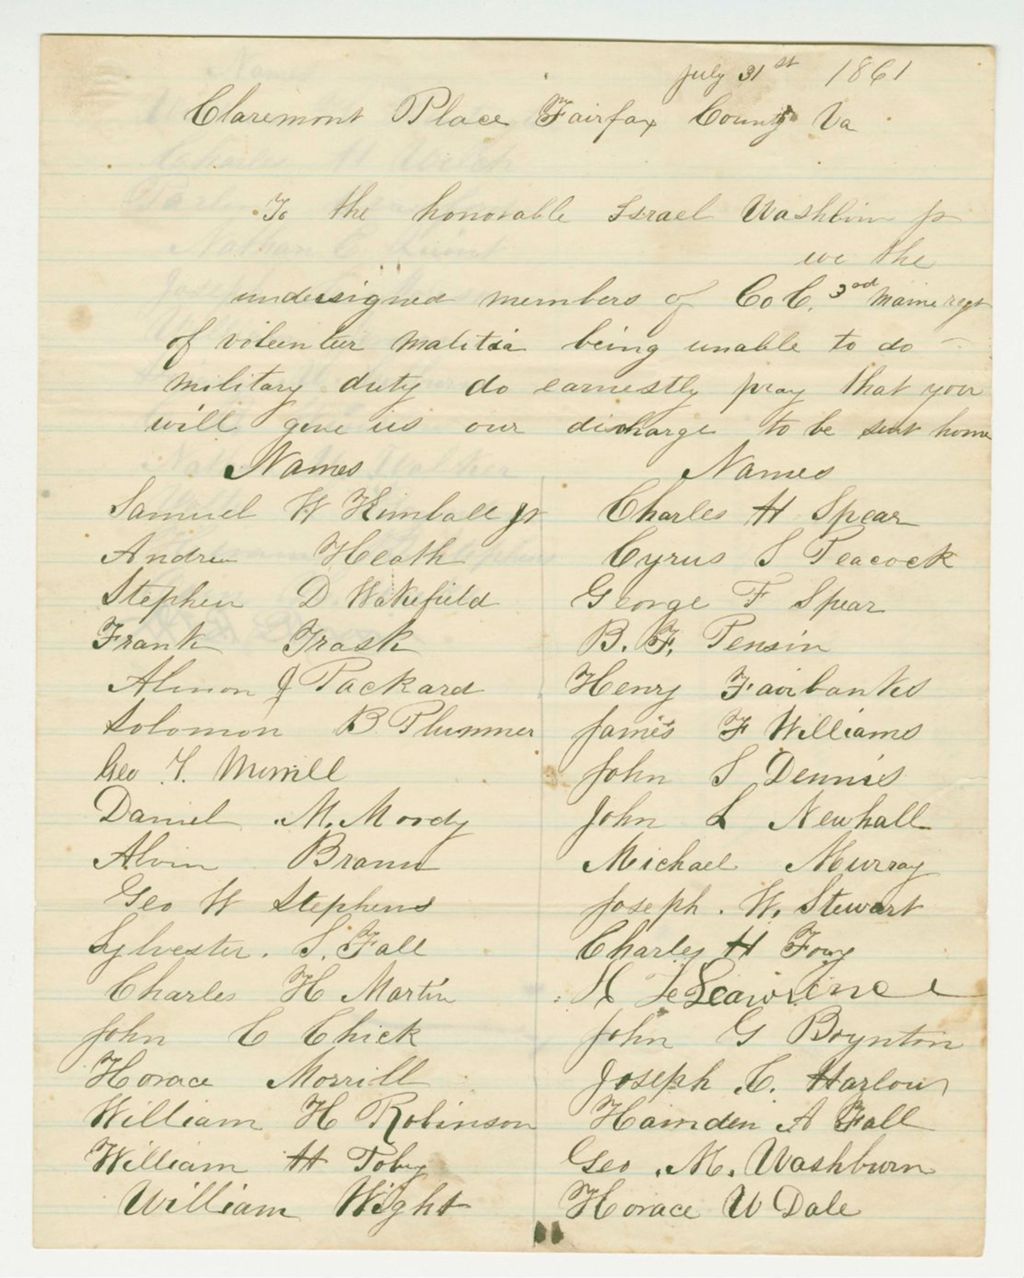 July 31st 1861
Claremont Place Fairfax County Va
To the honorable Israel Washbin jr
we the
undersigned members of Co C. 3rd Maine regt
of voleenteer malitia being unable to do
military duty do earnestly pray that you
will give us our discharge to be sent home
Names
Samuel W Kimball jr
Andrew Heath
Stephen D Wakefield
Frank Trask
Almon J Packard
Solomon B Plummer
Geo F. Merrill
Daniel M. Mordy
Alvin Brann
Geo W Stephens
Sylvester. S. Fall
Charles H Martin
John C Chick
Horace Morrill
William H Robinson
William H Toby
William Wight
Names
Charles H Spear
Cyrus S Peacock
George F Spear
B. F. Pensin
Henry Fairbanks
James F Williams
John S Dennis
John L Newhall
Michael Murray
Joseph. W. Stewart
Charles H Foy
Lawrence
John G Boynton
Joseph C. Harlow
Hamden A Fall
Geo. M. Washburn
Horace W Dale